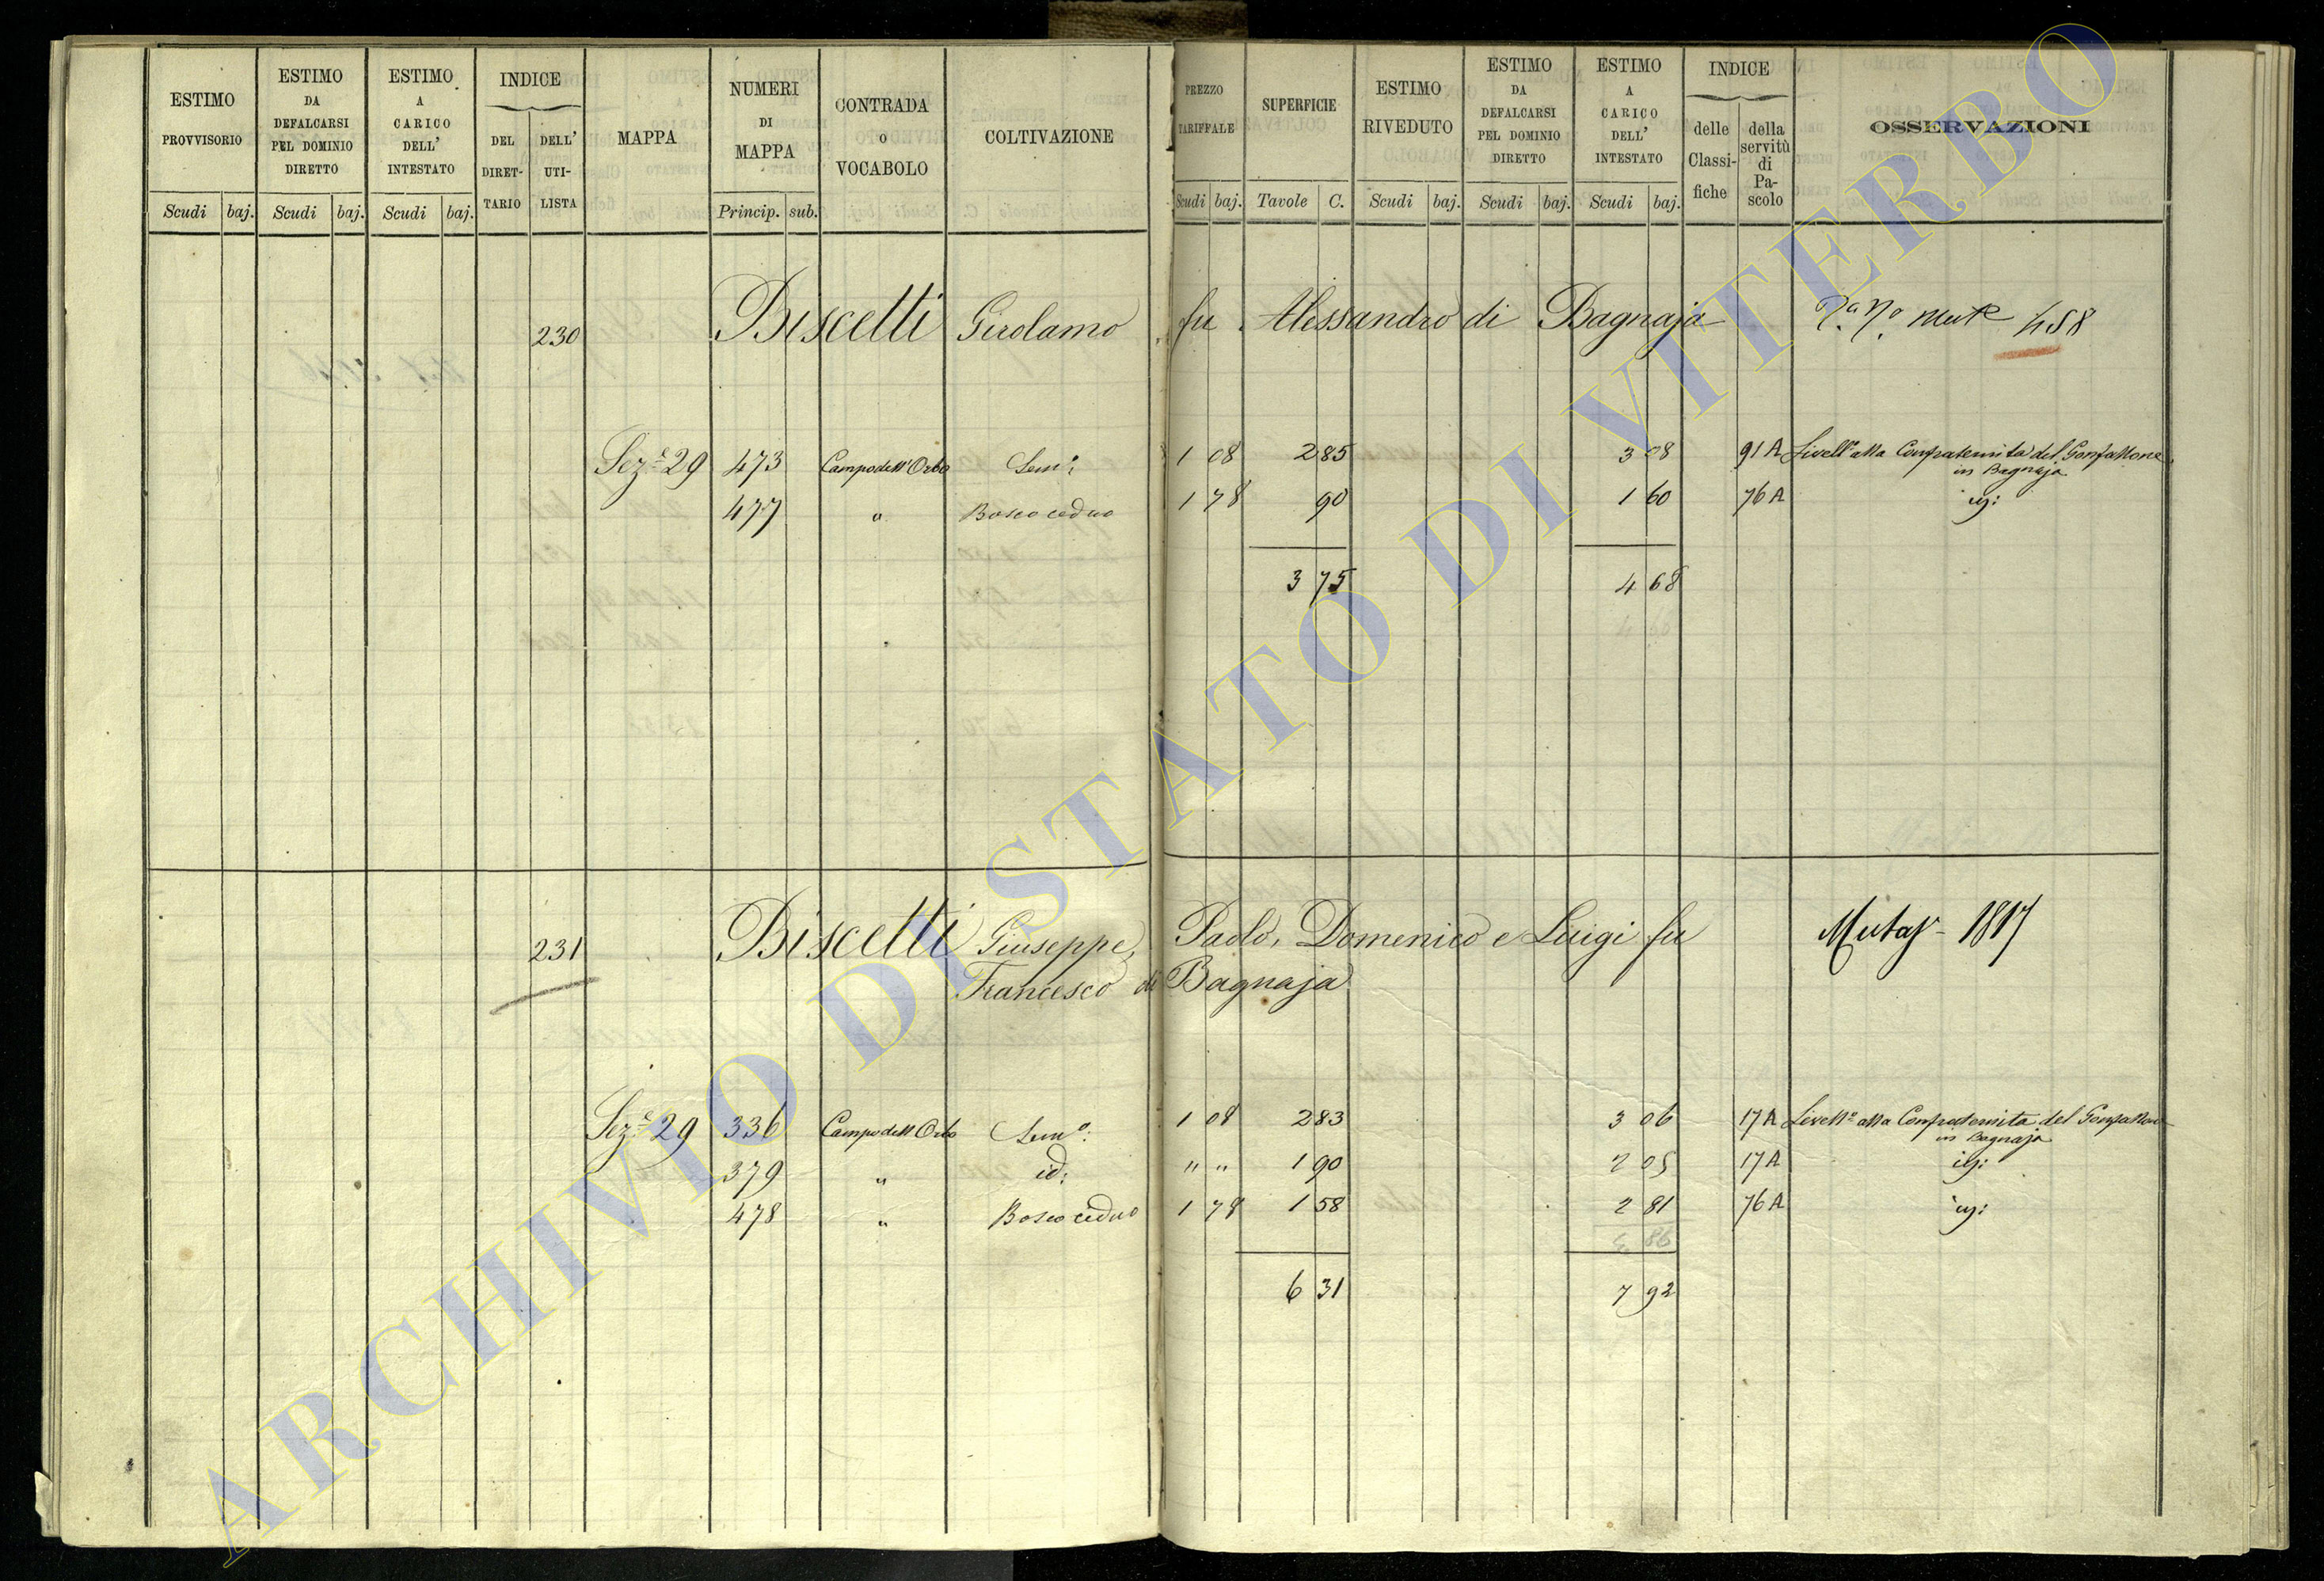 ESTIMO PROVVISORIO
ESTIMO DA DEFALCARSI PEL DOMINIO DIRETTO
ESTIMO A CARICO DELL' INTESTATO
INDICE
DEL DIRETTARIO
DELL' UTILISTA
MAPPA
NUMERI DI MAPPA
CONTRADA O VOCABOLO
COLTIVAZIONE
PREZZO TARIFFALE
SUPERFICIE
ESTIMO RIVEDUTO
ESTIMO DA DEFALCARSI PEL DOMINIO DIRETTO
ESTIMO A CARICO DELL' INTESTATO
INDICE
delle Classifiche
della servitù di Pascolo
OSSERVAZIONI
Scudi baj. Scudi baj. Scudi baj. Princip. sub. Scudi baj. Tavole C. Scudi baj. Scudi baj. Scudi baj.
230 Biscetti Girolamo fu Alessandro di Bagnaja 458
Sez.e 29 473 Campo dell'Orbo Sem.o 1 08 2 85 3 08 91 A Livell.o alla Confraternita del Gonfallone
in Bagnaja
477 " Bosco ceduo 1 78 90 1 60 76 A id:
3 75 4 68
231 Biscetti Giuseppe, Paolo, Domenico e Luigi fu
Francesco di Bagnaja
1817
Sez.e 29 336 Campo dell Orbo Sem.o 1 08 2 83 3 06 17 A Livell.o alla Confraternita del Gonfallone
in Bagnaja
379 " id: " " 1 90 2 05 17 A id:
478 " Bosco ceduo 1 78 1 58 2 81 76 A id:
6 31 7 92
ARCHIVIO DI STATO DI VITERBO